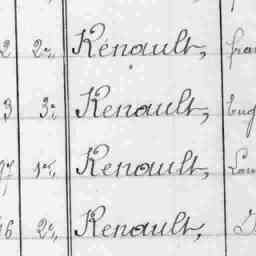 2 2e, Rénault, fran
3 3e Renault, Eug
97 1er, Renault, Lou
16 2e, Renault,